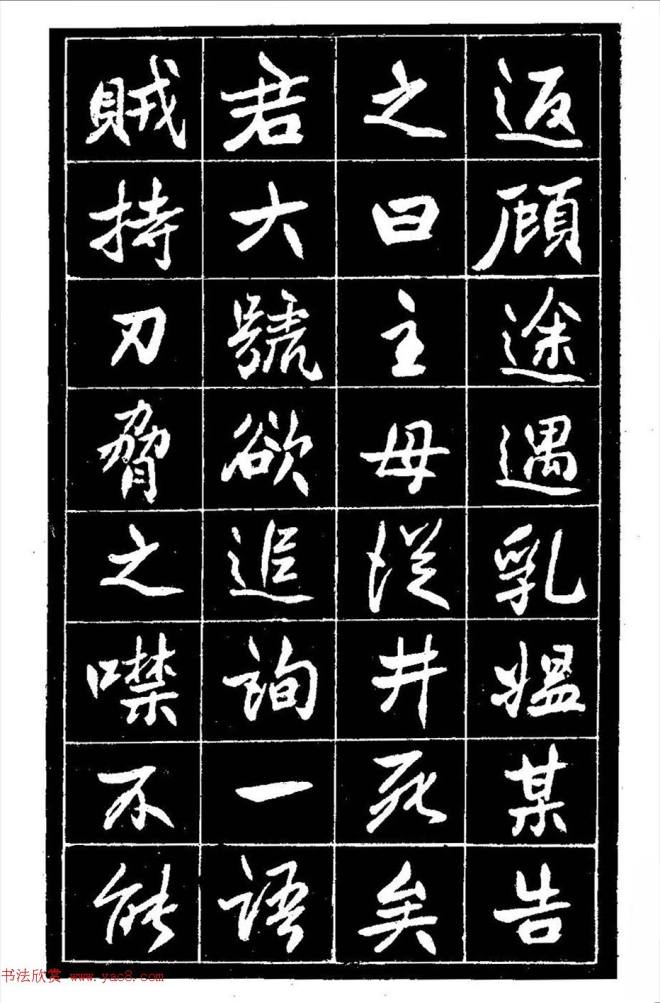 返顧途遇乳媼某告
之曰主母從井死矣
君大號欲追詢一語
賊持刀脅之噤不能
书法欣赏 www.yac8.com